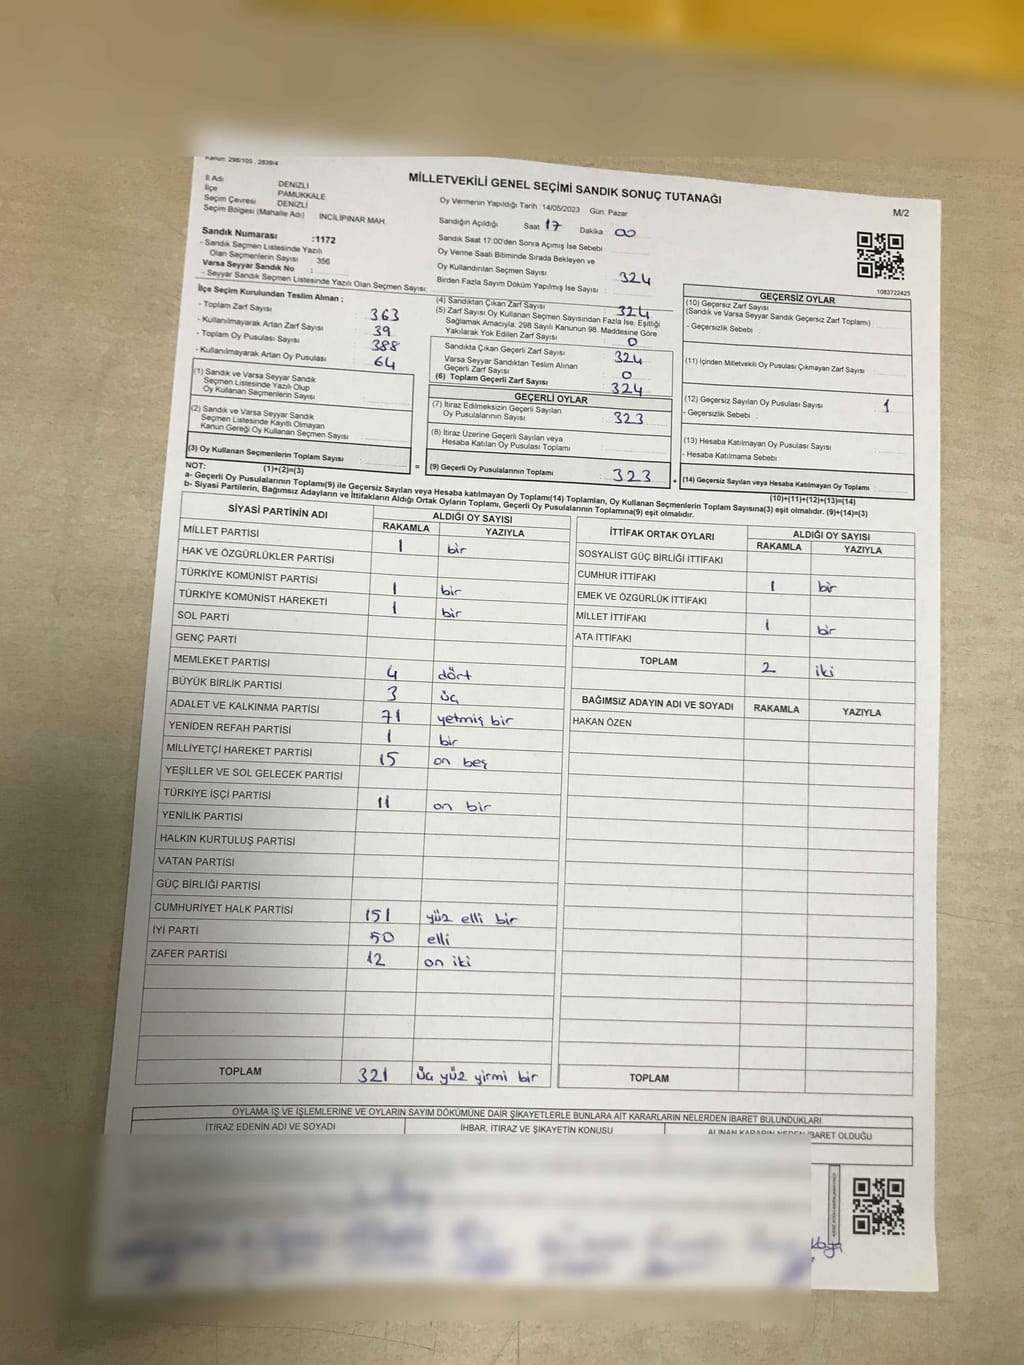 Kanun: 298/105 , 2839/4
MİLLETVEKİLİ GENEL SEÇİMİ SANDIK SONUÇ TUTANAĞI
M/2
İl Adı DENİZLİ
İlçe PAMUKKALE
Seçim Çevresi DENİZLİ
Seçim Bölgesi (Mahalle Adı) : İNCİLİPINAR MAH.
Sandık Numarası :1172
- Sandık Seçmen Listesinde Yazılı
Olan Seçmenlerin Sayısı 356
Varsa Seyyar Sandık No :
- Seyyar Sandık Seçmen Listesinde Yazılı Olan Seçmen Sayısı:
Oy Vermenin Yapıldığı Tarih :14/05/2023 Gün: Pazar
Sandığın Açıldığı Saat 17 Dakika 00
Sandık Saat 17:00'den Sonra Açmış İse Sebebi
Oy Verme Saati Bitiminde Sırada Bekleyen ve
Oy Kullandırılan Seçmen Sayısı 324
Birden Fazla Sayım Döküm Yapılmış İse Sayısı :
1083722425
İlçe Seçim Kurulundan Teslim Alınan ;
- Toplam Zarf Sayısı 363
- Kullanılmayarak Artan Zarf Sayısı 39
- Toplam Oy Pusulası Sayısı 388
- Kullanılmayarak Artan Oy Pusulası 64
(1) Sandık ve Varsa Seyyar Sandık
Seçmen Listesinde Yazılı Olup
Oy Kullanan Seçmenlerin Sayısı
(2) Sandık ve Varsa Seyyar Sandık
Seçmen Listesinde Kayıtlı Olmayan
Kanun Gereği Oy Kullanan Seçmen Sayısı
(3) Oy Kullanan Seçmenlerin Toplam Sayısı
(1)+(2)=(3)
(4) Sandıktan Çıkan Zarf Sayısı 324
(5) Zarf Sayısı Oy Kullanan Seçmen Sayısından Fazla İse, Eşitliği
Sağlamak Amacıyla, 298 Sayılı Kanunun 98. Maddesine Göre
Yakılarak Yok Edilen Zarf Sayısı 0
Sandıkta Çıkan Geçerli Zarf Sayısı 324
Varsa Seyyar Sandıktan Teslim Alınan
Geçerli Zarf Sayısı 0
(6) Toplam Geçerli Zarf Sayısı 324
GEÇERLİ OYLAR
(7) İtiraz Edilmeksizin Geçerli Sayılan
Oy Pusulalarının Sayısı 323
(8) İtiraz Üzerine Geçerli Sayılan veya
Hesaba Katılan Oy Pusulası Toplamı
= (9) Geçerli Oy Pusulalarının Toplamı : 323 +
GEÇERSİZ OYLAR
(10) Geçersiz Zarf Sayısı
(Sandık ve Varsa Seyyar Sandık Geçersiz Zarf Toplamı)
- Geçersizlik Sebebi :
(11) İçinden Milletvekili Oy Pusulası Çıkmayan Zarf Sayısı
(12) Geçersiz Sayılan Oy Pusulası Sayısı 1
- Geçersizlik Sebebi :
(13) Hesaba Katılmayan Oy Pusulası Sayısı
- Hesaba Katılmama Sebebi :
(14) Geçersiz Sayılan veya Hesaba Katılmayan Oy Toplamı
(10)+(11)+(12)+(13)=(14)
NOT:
a- Geçerli Oy Pusulalarının Toplamı(9) ile Geçersiz Sayılan veya Hesaba katılmayan Oy Toplamı(14) Toplamları, Oy Kullanan Seçmenlerin Toplam Sayısına(3) eşit olmalıdır. (9)+(14)=(3)
b- Siyasi Partilerin, Bağımsız Adayların ve İttifakların Aldığı Ortak Oyların Toplamı, Geçerli Oy Pusulalarının Toplamına(9) eşit olmalıdır.
SİYASİ PARTİNİN ADI ALDIĞI OY SAYISI
RAKAMLA YAZIYLA
MİLLET PARTİSİ 1 bir
HAK VE ÖZGÜRLÜKLER PARTİSİ
TÜRKİYE KOMÜNİST PARTİSİ 1 bir
TÜRKİYE KOMÜNİST HAREKETİ 1 bir
SOL PARTİ
GENÇ PARTİ
MEMLEKET PARTİSİ 4 dört
BÜYÜK BİRLİK PARTİSİ 3 üç
ADALET VE KALKINMA PARTİSİ 71 yetmiş bir
YENİDEN REFAH PARTİSİ 1 bir
MİLLİYETÇİ HAREKET PARTİSİ 15 on beş
YEŞİLLER VE SOL GELECEK PARTİSİ
TÜRKİYE İŞÇİ PARTİSİ 11 on bir
YENİLİK PARTİSİ
HALKIN KURTULUŞ PARTİSİ
VATAN PARTİSİ
GÜÇ BİRLİĞİ PARTİSİ
CUMHURİYET HALK PARTİSİ 151 yüz elli bir
İYİ PARTİ 50 elli
ZAFER PARTİSİ 12 on iki
TOPLAM 321 üç yüz yirmi bir
İTTİFAK ORTAK OYLARI ALDIĞI OY SAYISI
RAKAMLA YAZIYLA
SOSYALİST GÜÇ BİRLİĞİ İTTİFAKI
CUMHUR İTTİFAKI 1 bir
EMEK VE ÖZGÜRLÜK İTTİFAKI
MİLLET İTTİFAKI 1 bir
ATA İTTİFAKI
TOPLAM 2 iki
BAĞIMSIZ ADAYIN ADI VE SOYADI RAKAMLA YAZIYLA
HAKAN ÖZEN
TOPLAM
OYLAMA İŞ VE İŞLEMLERİNE VE OYLARIN SAYIM DÖKÜMÜNE DAİR ŞİKAYETLERLE BUNLARA AİT KARARLARIN NELERDEN İBARET BULUNDUKLARI
İTİRAZ EDENİN ADI VE SOYADI İHBAR, İTİRAZ VE ŞİKAYETİN KONUSU ALINAN KARARIN NEDEN İBARET OLDUĞU